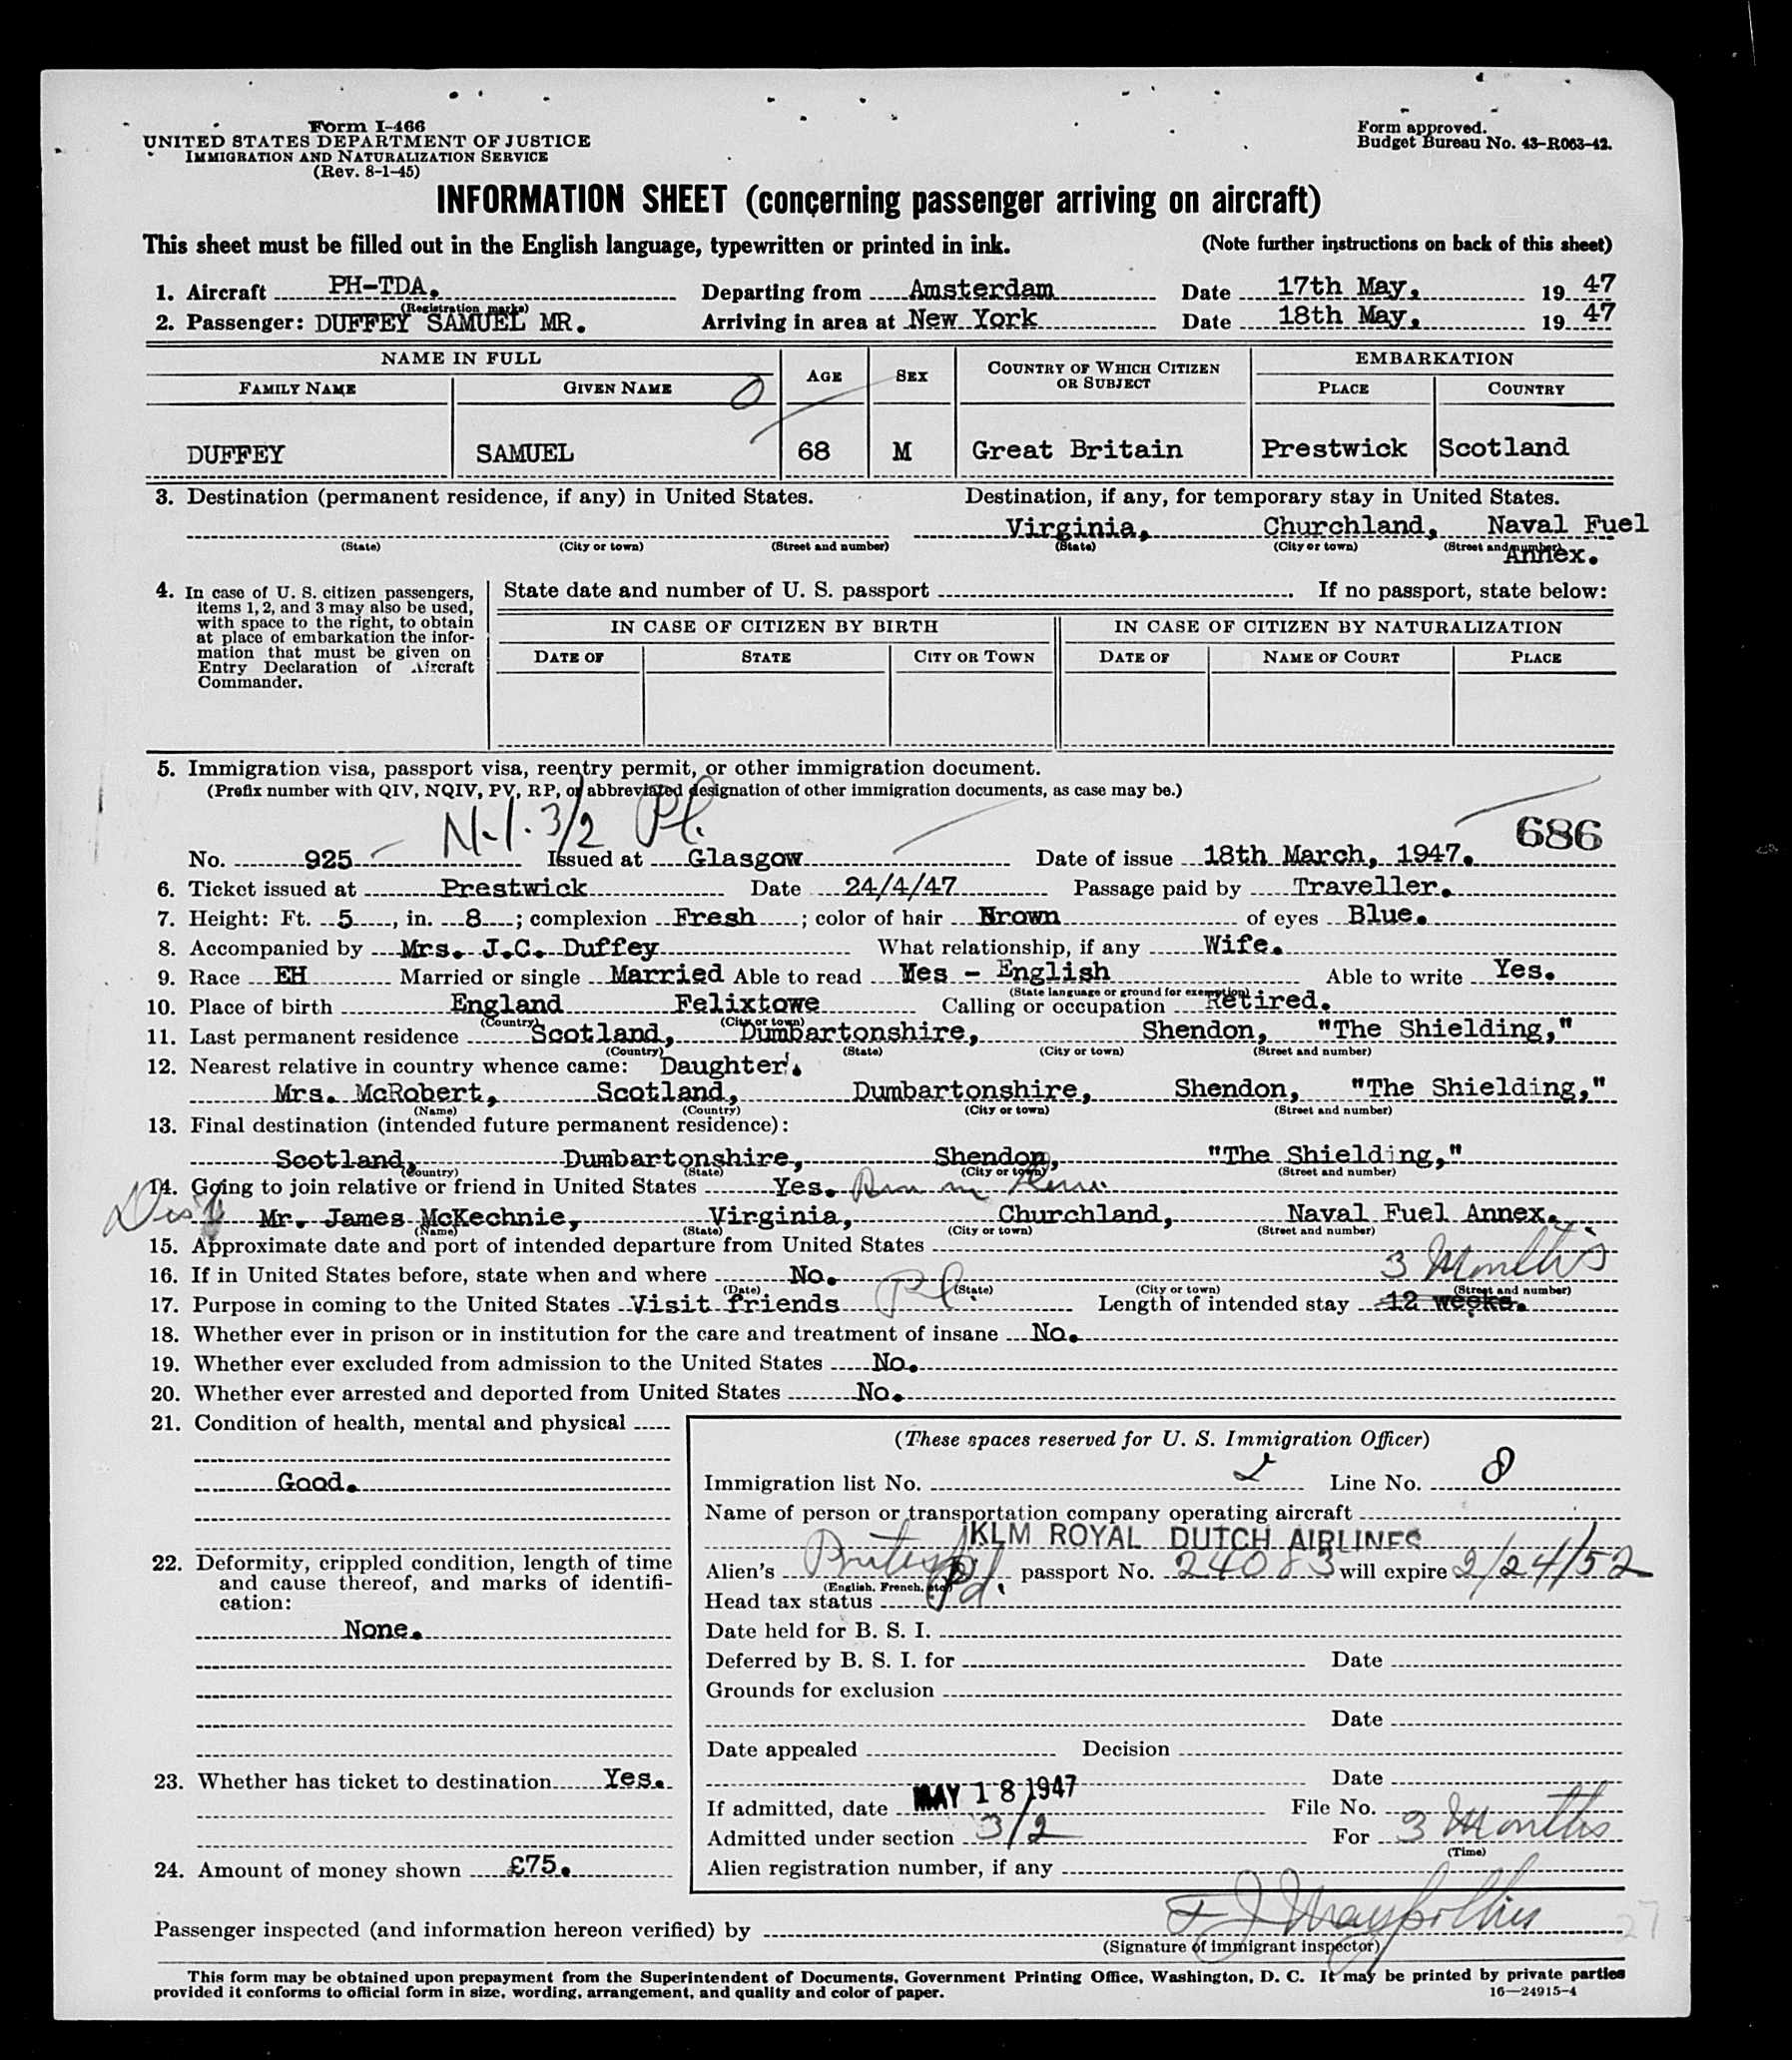 Form I-466
UNITED STATES DEPARTMENT OF JUSTICE
IMMIGRATION AND NATURALIZATION SERVICE
(Rev. 8-1-45)
Form approved.
Budget Bureau No. 43-R063-42.
INFORMATION SHEET (concerning passenger arriving on aircraft)
This sheet must be filled out in the English language, typewritten or printed in ink. (Note further instructions on back of this sheet)
1. Aircraft PH-TDA. Departing from Amsterdam Date 17th May, 19 47
(Registration marks)
2. Passenger: DUFFEY SAMUEL MR. Arriving in area at New York Date 18th May, 19 47
NAME IN FULL AGE SEX COUNTRY OF WHICH CITIZEN OR SUBJECT EMBARKATION
FAMILY NAME GIVEN NAME PLACE COUNTRY
DUFFEY SAMUEL 68 M Great Britain Prestwick Scotland
3. Destination (permanent residence, if any) in United States. Destination, if any, for temporary stay in United States.
Virginia, Churchland, Naval Fuel
(State) (City or town) (Street and number) (State) (City or town) (Street and number)
Annex.
4. In case of U. S. citizen passengers, items 1, 2, and 3 may also be used, with space to the right, to obtain at place of embarkation the information that must be given on Entry Declaration of Aircraft Commander.
State date and number of U. S. passport If no passport, state below:
IN CASE OF CITIZEN BY BIRTH IN CASE OF CITIZEN BY NATURALIZATION
DATE OF STATE CITY OR TOWN DATE OF NAME OF COURT PLACE
5. Immigration visa, passport visa, reentry permit, or other immigration document.
(Prefix number with QIV, NQIV, PV, RP, or abbreviated designation of other immigration documents, as case may be.)
N.I. 3/2 Pl. 686
No. 925 Issued at Glasgow Date of issue 18th March, 1947.
6. Ticket issued at Prestwick Date 24/4/47 Passage paid by Traveller.
7. Height: Ft. 5, in. 8; complexion Fresh; color of hair Brown of eyes Blue.
8. Accompanied by Mrs. J.C. Duffey What relationship, if any Wife.
9. Race EH Married or single Married Able to read Yes - English Able to write Yes.
(State language or ground for exemption)
10. Place of birth England Felixtowe Calling or occupation Retired.
(Country) (City or town)
11. Last permanent residence Scotland, Dumbartonshire, Shendon, "The Shielding,"
(Country) (State) (City or town) (Street and number)
12. Nearest relative in country whence came: Daughter.
Mrs. McRobert, Scotland, Dumbartonshire, Shendon, "The Shielding,"
(Name) (Country) (City or town) (Street and number)
13. Final destination (intended future permanent residence):
Scotland, Dumbartonshire, Shendon, "The Shielding,"
(Country) (State) (City or town) (Street and number)
14. Going to join relative or friend in United States Yes.
Mr. James McKechnie, Virginia, Churchland, Naval Fuel Annex.
(Name) (State) (City or town) (Street and number)
15. Approximate date and port of intended departure from United States
3 Months
16. If in United States before, state when and where No.
(Date) (State) (City or town) (Street and number)
17. Purpose in coming to the United States Visit friends Pl Length of intended stay 12 weeks.
18. Whether ever in prison or in institution for the care and treatment of insane No.
19. Whether ever excluded from admission to the United States No.
20. Whether ever arrested and deported from United States No.
21. Condition of health, mental and physical
Good.
22. Deformity, crippled condition, length of time and cause thereof, and marks of identification:
None.
23. Whether has ticket to destination Yes.
24. Amount of money shown £75.
(These spaces reserved for U. S. Immigration Officer)
Immigration list No. 2 Line No. 8
Name of person or transportation company operating aircraft
KLM ROYAL DUTCH AIRLINES
Alien's passport No. 24083 will expire 2/24/52
(English, French, etc.)
Head tax status Pd.
Date held for B. S. I.
Deferred by B. S. I. for Date
Grounds for exclusion
Date
Date appealed Decision
Date
If admitted, date MAY 18 1947 File No.
Admitted under section 3/2 For 3 Months
(Time)
Alien registration number, if any
Passenger inspected (and information hereon verified) by
(Signature of immigrant inspector)
27
This form may be obtained upon prepayment from the Superintendent of Documents, Government Printing Office, Washington, D. C. It may be printed by private parties
provided it conforms to official form in size, wording, arrangement, and quality and color of paper.
16—24915-4